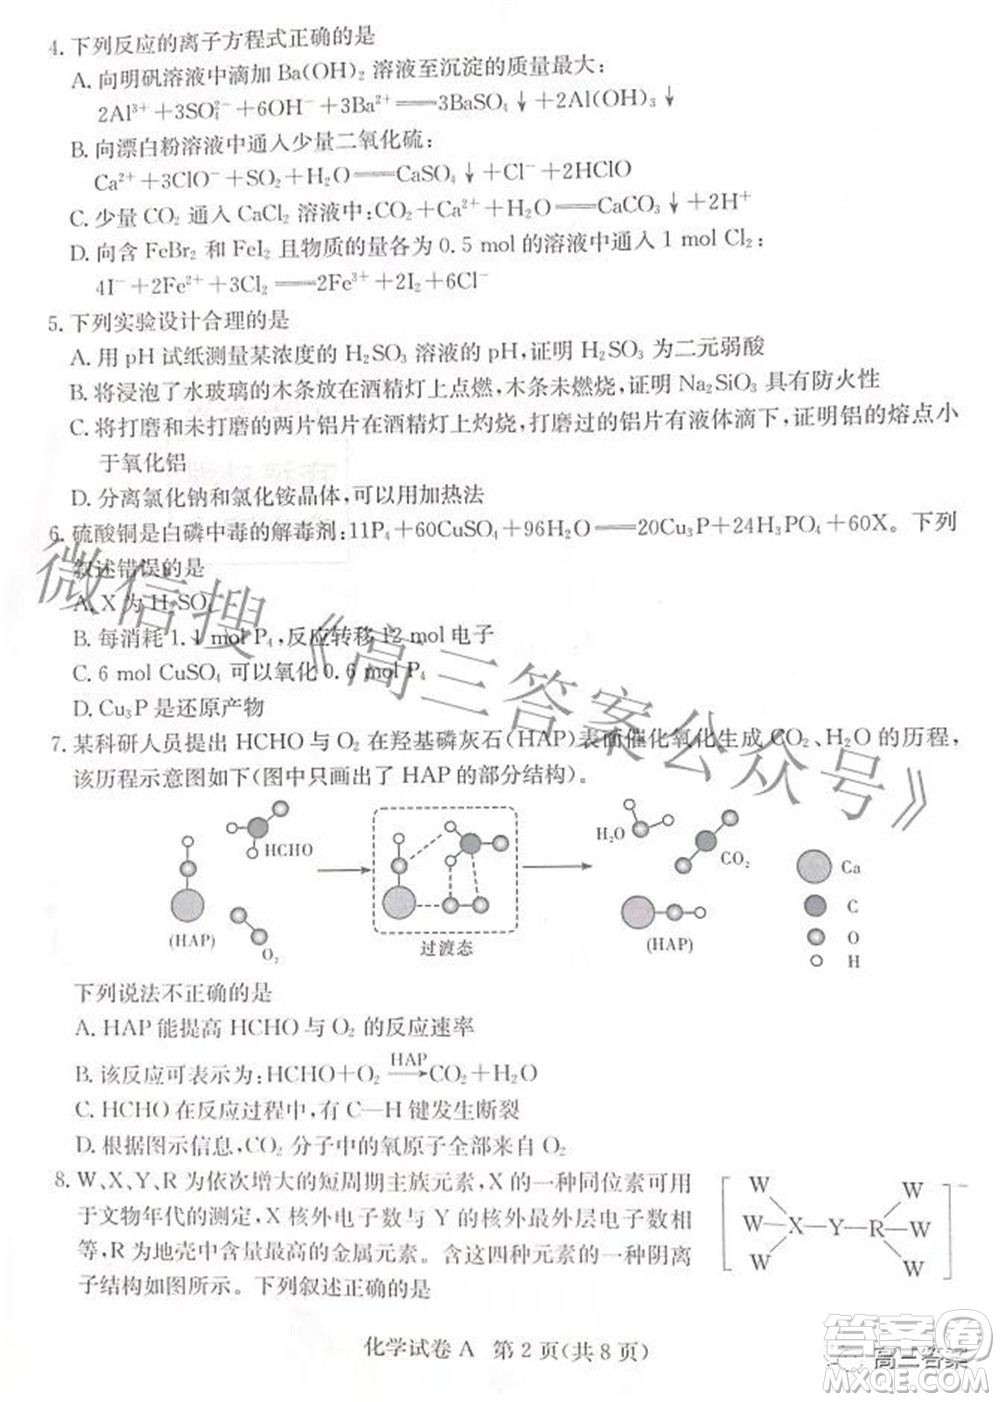 4. 下列反应的离子方程式正确的是
A. 向明矾溶液中滴加 Ba(OH)₂ 溶液至沉淀的质量最大:
2Al³⁺+3SO₄²⁻+6OH⁻+3Ba²⁺══3BaSO₄↓+2Al(OH)₃↓
B. 向漂白粉溶液中通入少量二氧化硫:
Ca²⁺+3ClO⁻+SO₂+H₂O══CaSO₄↓+Cl⁻+2HClO
C. 少量 CO₂ 通入 CaCl₂ 溶液中:CO₂+Ca²⁺+H₂O══CaCO₃↓+2H⁺
D. 向含 FeBr₂ 和 FeI₂ 且物质的量各为 0.5 mol 的溶液中通入 1 mol Cl₂:
4I⁻+2Fe²⁺+3Cl₂══2Fe³⁺+2I₂+6Cl⁻
5. 下列实验设计合理的是
A. 用 pH 试纸测量某浓度的 H₂SO₃ 溶液的 pH,证明 H₂SO₃ 为二元弱酸
B. 将浸泡了水玻璃的木条放在酒精灯上点燃,木条未燃烧,证明 Na₂SiO₃ 具有防火性
C. 将打磨和未打磨的两片铝片在酒精灯上灼烧,打磨过的铝片有液体滴下,证明铝的熔点小
于氧化铝
D. 分离氯化钠和氯化铵晶体,可以用加热法
6. 硫酸铜是白磷中毒的解毒剂:11P₄+60CuSO₄+96H₂O══20Cu₃P+24H₃PO₄+60X。下列
叙述错误的是
A. X 为 H₂SO₄
B. 每消耗 1.1 mol P₄,反应转移 12 mol 电子
C. 6 mol CuSO₄ 可以氧化 0.6 mol P₄
D. Cu₃P 是还原产物
7. 某科研人员提出 HCHO 与 O₂ 在羟基磷灰石(HAP)表面催化氧化生成 CO₂、H₂O 的历程,
该历程示意图如下(图中只画出了 HAP 的部分结构)。
HCHO
(HAP)
O₂
过渡态
H₂O
CO₂
(HAP)
Ca
C
O
H
下列说法不正确的是
A. HAP 能提高 HCHO 与 O₂ 的反应速率
B. 该反应可表示为:HCHO+O₂ —HAP→ CO₂+H₂O
C. HCHO 在反应过程中,有 C—H 键发生断裂
D. 根据图示信息,CO₂ 分子中的氧原子全部来自 O₂
8. W、X、Y、R 为依次增大的短周期主族元素,X 的一种同位素可用
于文物年代的测定,X 核外电子数与 Y 的核外最外层电子数相
等,R 为地壳中含量最高的金属元素。含这四种元素的一种阴离
子结构如图所示。下列叙述正确的是
W W
W—X—Y—R—W
W W
−
化学试卷 A 第 2 页(共 8 页)
微信搜《高三答案公众号》
答案圈
高三答案
MXQE.COM